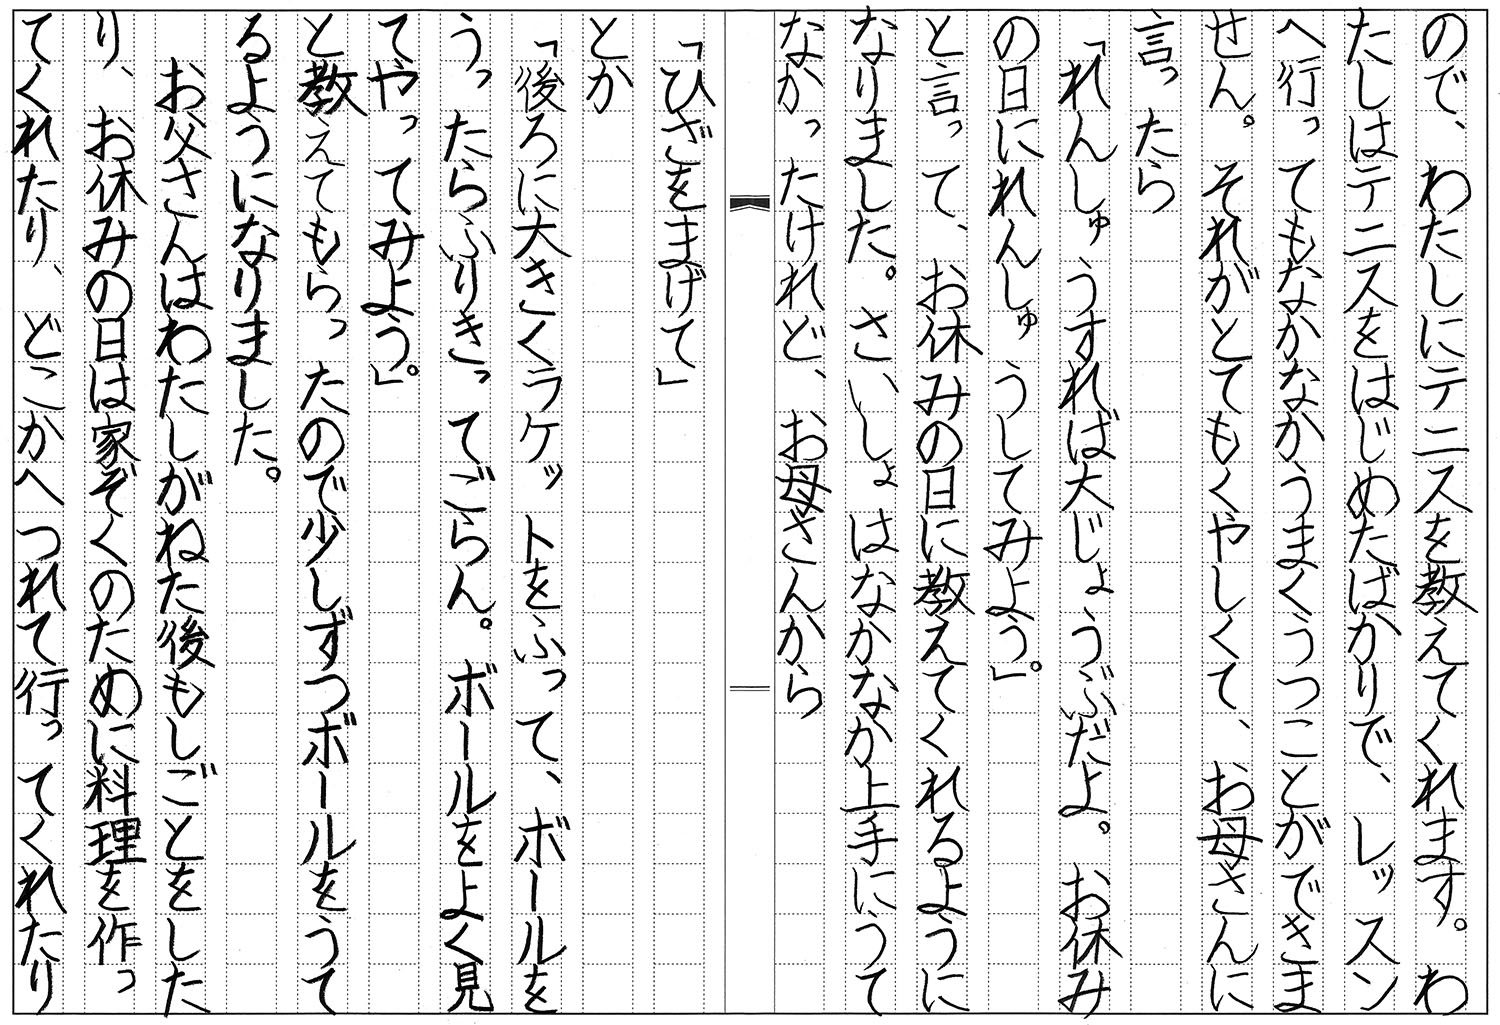 ので、わたしにテニスを教えてくれます。わ
たしはテニスをはじめたばかりで、レッスン
へ行ってもなかなかうまくうつことができま
せん。それがとてもくやしくて、お母さんに
言ったら
「れんしゅうすれば大じょうぶだよ。お休み
の日にれんしゅうしてみよう。」
と言って、お休みの日に教えてくれるように
なりました。さいしょはなかなか上手にうて
なかったけれど、お母さんから
「ひざをまげて」
とか
「後ろに大きくラケットをふって、ボールを
うったらふりきってごらん。ボールをよく見
てやってみよう。」
と教えてもらったので少しずつボールをうて
るようになりました。
お父さんはわたしがねた後もしごとをした
り、お休みの日は家ぞくのために料理を作っ
てくれたり、どこかへつれて行ってくれたり